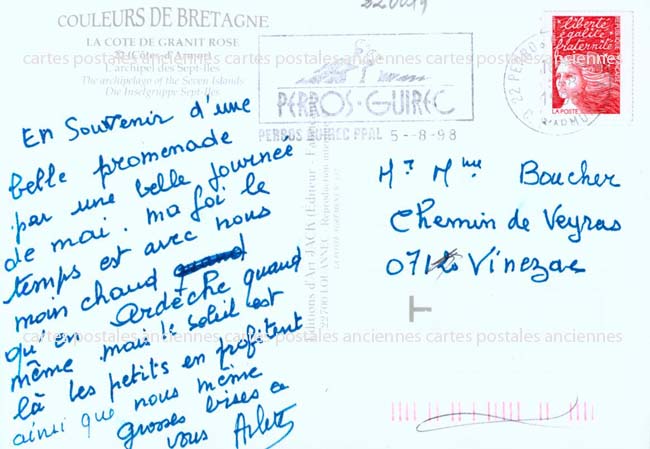 220019
COULEURS DE BRETAGNE
LA COTE DE GRANIT ROSE
22 (Côtes d'Armor)
L'archipel des Sept-Iles
The archipelago of the Seven Islands
Die Inselgruppe Sept-Iles
PERROS-GUIREC
PERROS GUIREC PPAL 5-8-98
22 PERROS
C. D'ARMOR
liberté
égalité
fraternité
LA POSTE
cartes postales anciennes cartes postales anciennes cartes postales anciennes
En Souvenir d'une
belle promenade
par une belle journée
de mai. ma foi le
temps est avec nous
moin chaud quand
qu'en Ardèche quand
même mais le soleil est
là les petits en profitent
ainsi que nous même
grosses bises a
vous Arlette
Editions d'Art JACK
Mr Mme Boucher
Chemin de Veyras
07120 Vinezac
T
cartes postales anciennes cartes postales anciennes cartes postales anciennes